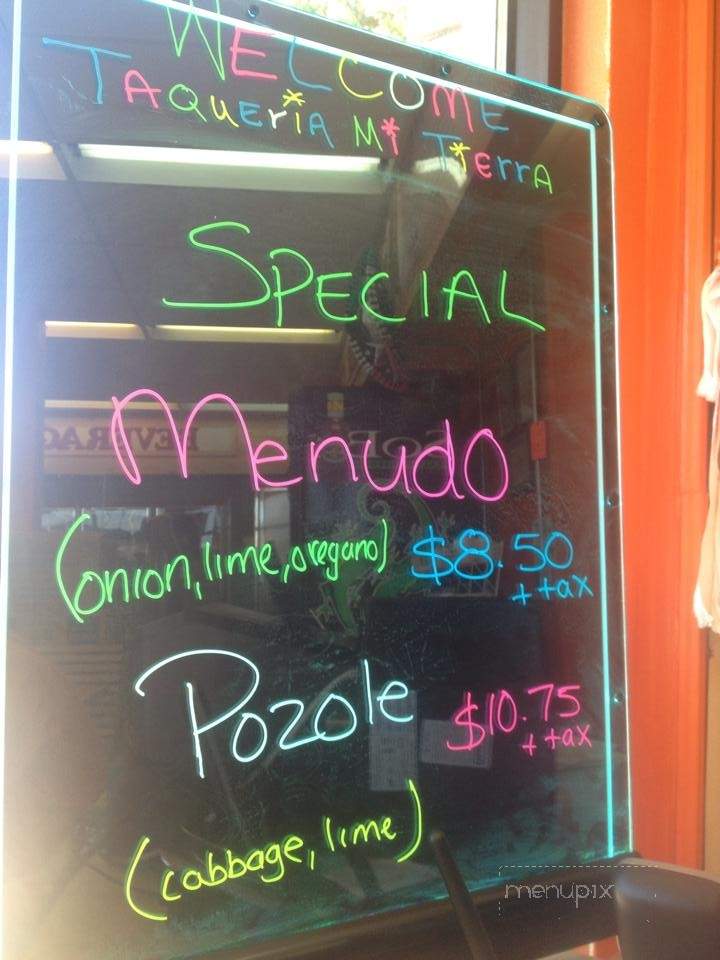 WELCOME
TAQUEriA Mi TierrA
SPECIAL
Menudo
(onion, lime, oregano) $8.50
+ tax
Pozole $10.75
+ tax
(cabbage, lime)
menupix